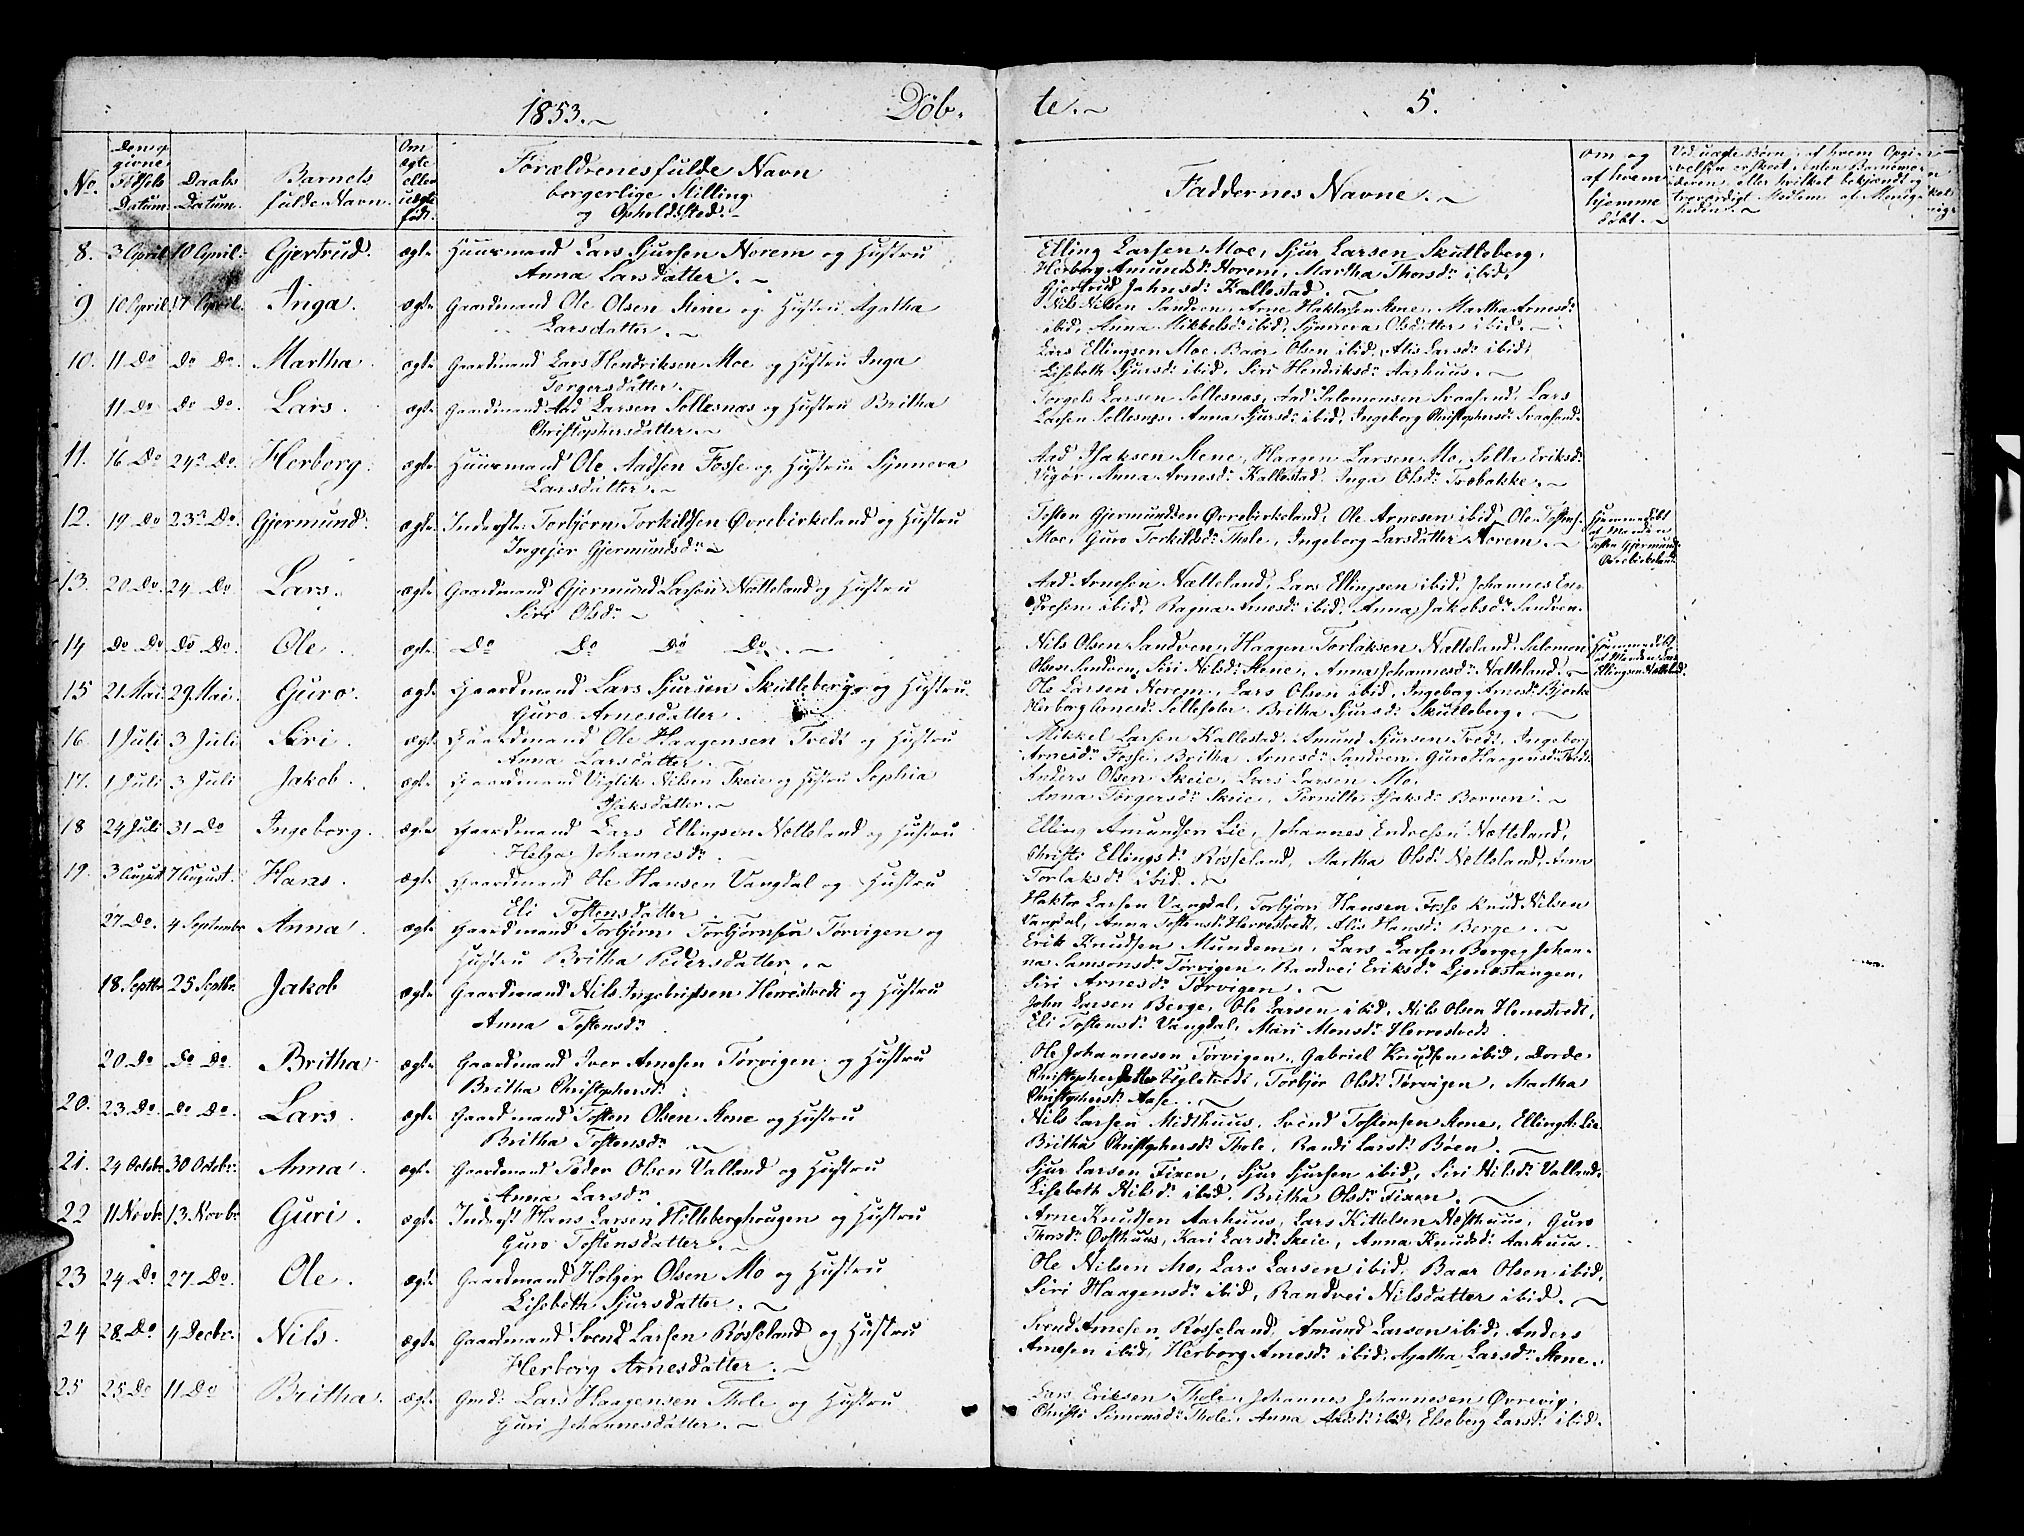 1853.
Döb-
te.
5.
No.
Den opgivne Födsels Datum.
Daabs Datum.
Barnets fulde Navn.
Om ægte eller uægte født.
Forældrenes fulde Navn borgerlige Stilling og Opholdssted.
Faddernes Navne.
om og af hvem hjemmedöbt.
8. 3 April 10 April. Gjertrud. ægte Huusmand Lars Sjursen Norem og Hustru
Anna Larsdatter.
Elling Larsen Moe, Sjur Larsen Skutleberg,
Herborg Amundsdr Norem, Martha Thorsdr ibid,
Gjertrud Jahnsdr Kallestad.
9 10 April 17 April. Inga. ægte Gaardmand Ole Olsen Stene og Hustru Agatha
Larsdatter.
Nils Nilsen Sandven, Arne Haktorsen Stene, Martha Arnesdr
ibid, Anna Mikkelsdr ibid, Synneva Olsdatter ibid.
10. 11 Do Do Do. Martha. ægte Gaardmand Lars Hendriksen Moe og Hustru Inga
Torgersdatter.
Lars Ellingsen Moe, Baar Olsen ibid, Alis Larsdr ibid,
Lisebeth Sjursdr ibid, Siri Hendriksdr Aarhuus.
11 Do Do Do. Lars. ægte Gaardmand Aad Larsen Sellesnæs og Hustru Britha
Christophersdatter.
Torgels Larsen Sellesnæs, Aad Salomonsen Svaasand, Lars
Larsen Sellesnæs, Anna Sjursdr ibid, Ingeborg Christophersdr Svaasand.
11. 16 Do 24de Do. Herborg. ægte Huusmand Ole Aadsen Fosse og Hustru Synneva
Larsdatter.
Aad Isaksen Stene, Haagen Larsen Mo, Eriksdr
Vigör, Anna Arnesdr Kallestad, Inga Olsdr Træbakke.
12. 19 Do 23de Do. Gjermund. ægte Inderste Torbjörn Torkildsen Øvrebirkeland og Hustru
Ingejer Gjermundsdr
Tosten Gjermundsen Øvrebirkeland, Ole Arnesen ibid, Ole Tostens.
Moe, Guro Torkildsdr Thole, Ingeborg Larsdatter Norem.
Hjemmedöbt af Manden Tosten Gjermunds. Øvrebirkeland.
13. 20 Do. 24. Do Lars. ægte Gaardmand Gjermund Larsen Nætteland og Hustru
Siri Olsdr
Aad Arnesen Nætteland, Lars Ellingsen ibid, Johannes En-
dresen ibid, Ragna Arnesdr ibid, Anna Jakobsdr Sandven.
14 Do Do Do Do. Ole. ægte Do Do Do Do.
Nils Olsen Sandven, Haagen Torlaksen Nætteland, Solomon
Olsen Sandven, Siri Nilsdr Stene, Anna Johannesdr Nætteland.
Hjemmedöbt af Manden Lars Ellingsen Nættelnd.
15 21. Mai. 29. Mai. Guro. ægte Gaardmand Lars Sjursen Skutleberg og Hustru
Guro Arnesdatter.
Ole Larsen Norem, Lars Olsen ibid, Ingeborg Arnesdr Bjerke
Herborg Arnesdr, Britha Sjursdr Skutleberg.
16. 1 Juli 3 Juli Siri. ægte Gaardmand Ole Haagensen Tvedt og Hustru
Anna Larsdatter.
Mikkel Larsen Kallestad, Amund Sjursen Tvedt, Ingeborg
Arnesdr Fosse, Britha Arnesdr Sandven, Guro Haagensdr Tvedt.
17. 1 Juli 3 Juli Jakob. ægte Gaardmand Viglik Nilsen Skeie og Hustru Sophia
Isaksdatter.
Anders Olsen Skeie, Lars Larsen Mo.
Anna Torgersdr Skeie, Pernille Isaksdr Berven.
18 24 Juli 31 Do Ingeborg. ægte Gaardmand Lars Ellingsen Nætteland og Hustru
Helga Johannesdr.
Elling Amundsen Lie, Johannes Endresen Nætteland,
Christi Ellingsdr Rösseland, Martha Olsdr Nætteland, Anna
Torlaksdr ibid.
19. 3 August 7 August. Hans. ægte Gaardmand Ole Hansen Vangdal og Hustru
Eli Tostensdatter.
Haktor Larsen Vangdal, Torbjörn Hansen Fosse, Knud Nilsen
Vangdal, Anna Tostensdr Herrestvedt, Alis Hansdr Berge.
27 Do. 4 Septembr Anna. ægte Gaardmand Torbjörn Torbjörnsen Torvigen og
Hustru Britha Pedersdatter.
Erik Knudsen Mundem, Lars Larsen Berge, Johan-
na Samsonsdr Torvigen, Randvei Eriksdr Ljonestangen,
Siri Arnesdr Torvigen.
18. Septbr 25 Septbr. Jakob ægte Gaardmand Nils Ingebrigtsen Herrestvedt og Hustru
Anna Tostensdr
John Larsen Berge, Ole Larsen ibid, Nils Olsen Herrestvedt,
Eli Tostensdr Vangdal, Mari Monsdr Herrestvedt.
20 Do Do Do. Britha. ægte Gaardmand Iver Arnesen Torvigen og Hustru
Britha Christophersdr.
Ole Johannesen Torvigen, Gabriel Knudsen ibid, Dorde
Christophersdatter Ugletvedt, Torbjör Olsdr Torvigen, Martha
Christophersdr Aase.
20. 23 Do Do Do. Lars. ægte Gaardmand Tosten Olsen Stene og Hustru
Britha Tostensdr
Nils Larsen Midthuus, Svend Tostensen Stene, Elling A. Lie
Britha Christophersdr Thole, Randi Larsdr Böen.
21. 24 Octobr 30 Octobr. Anna. ægte Gaardmand Peder Olsen Valland og Hustru
Anna Larsdr.
Sjur Larsen Fixen, Sjur Sjursen ibid, Siri Nilsdr Valland,
Lisebeth Nilsdr ibid, Britha Olsdr Fixen.
22 11 Novbr 13 Novbr Guri. ægte Inderst Hans Larsen Hilleberghaugen og Hustru
Guro Tostensdatter.
Arne Knudsen Aarhuus, Lars Kittelsen Østhuus, Guro
Thorsdr Østhuus, Kari Larsdr Skeie, Anna Knudsdr Aarhuus.
23 24. Do 27. Do. Ole. ægte Gaardmand Holger Olsen Mo og Hustru
Lisebeth Sjursdatter.
Ole Nilsen Mo, Lars Larsen ibid, Baar Olsen ibid,
Siri Haagensdr ibid, Randvei Nilsdatter ibid.
24 28. Do 4 Decbr. Nils. ægte Gaardmand Svend Larsen Rösseland og Hustru
Herborg Arnesdatter.
Svend Arnesen Rosseland, Amund Larsen ibid, Anders
Arnesen ibid, Herborg Arnesdr ibid, Agatha Larsdr Stene.
25 25. Do 11. Do Britha. ægte Gmd: Lars Haagensen Thole og Hustru
Guri Johannesdatter.
Lars Eriksen Thole, Johannes Johannesen Øvrevig,
Christi Simonsdr Thole, Anna Aadsdr ibid, Elseberg Larsdr ibid.